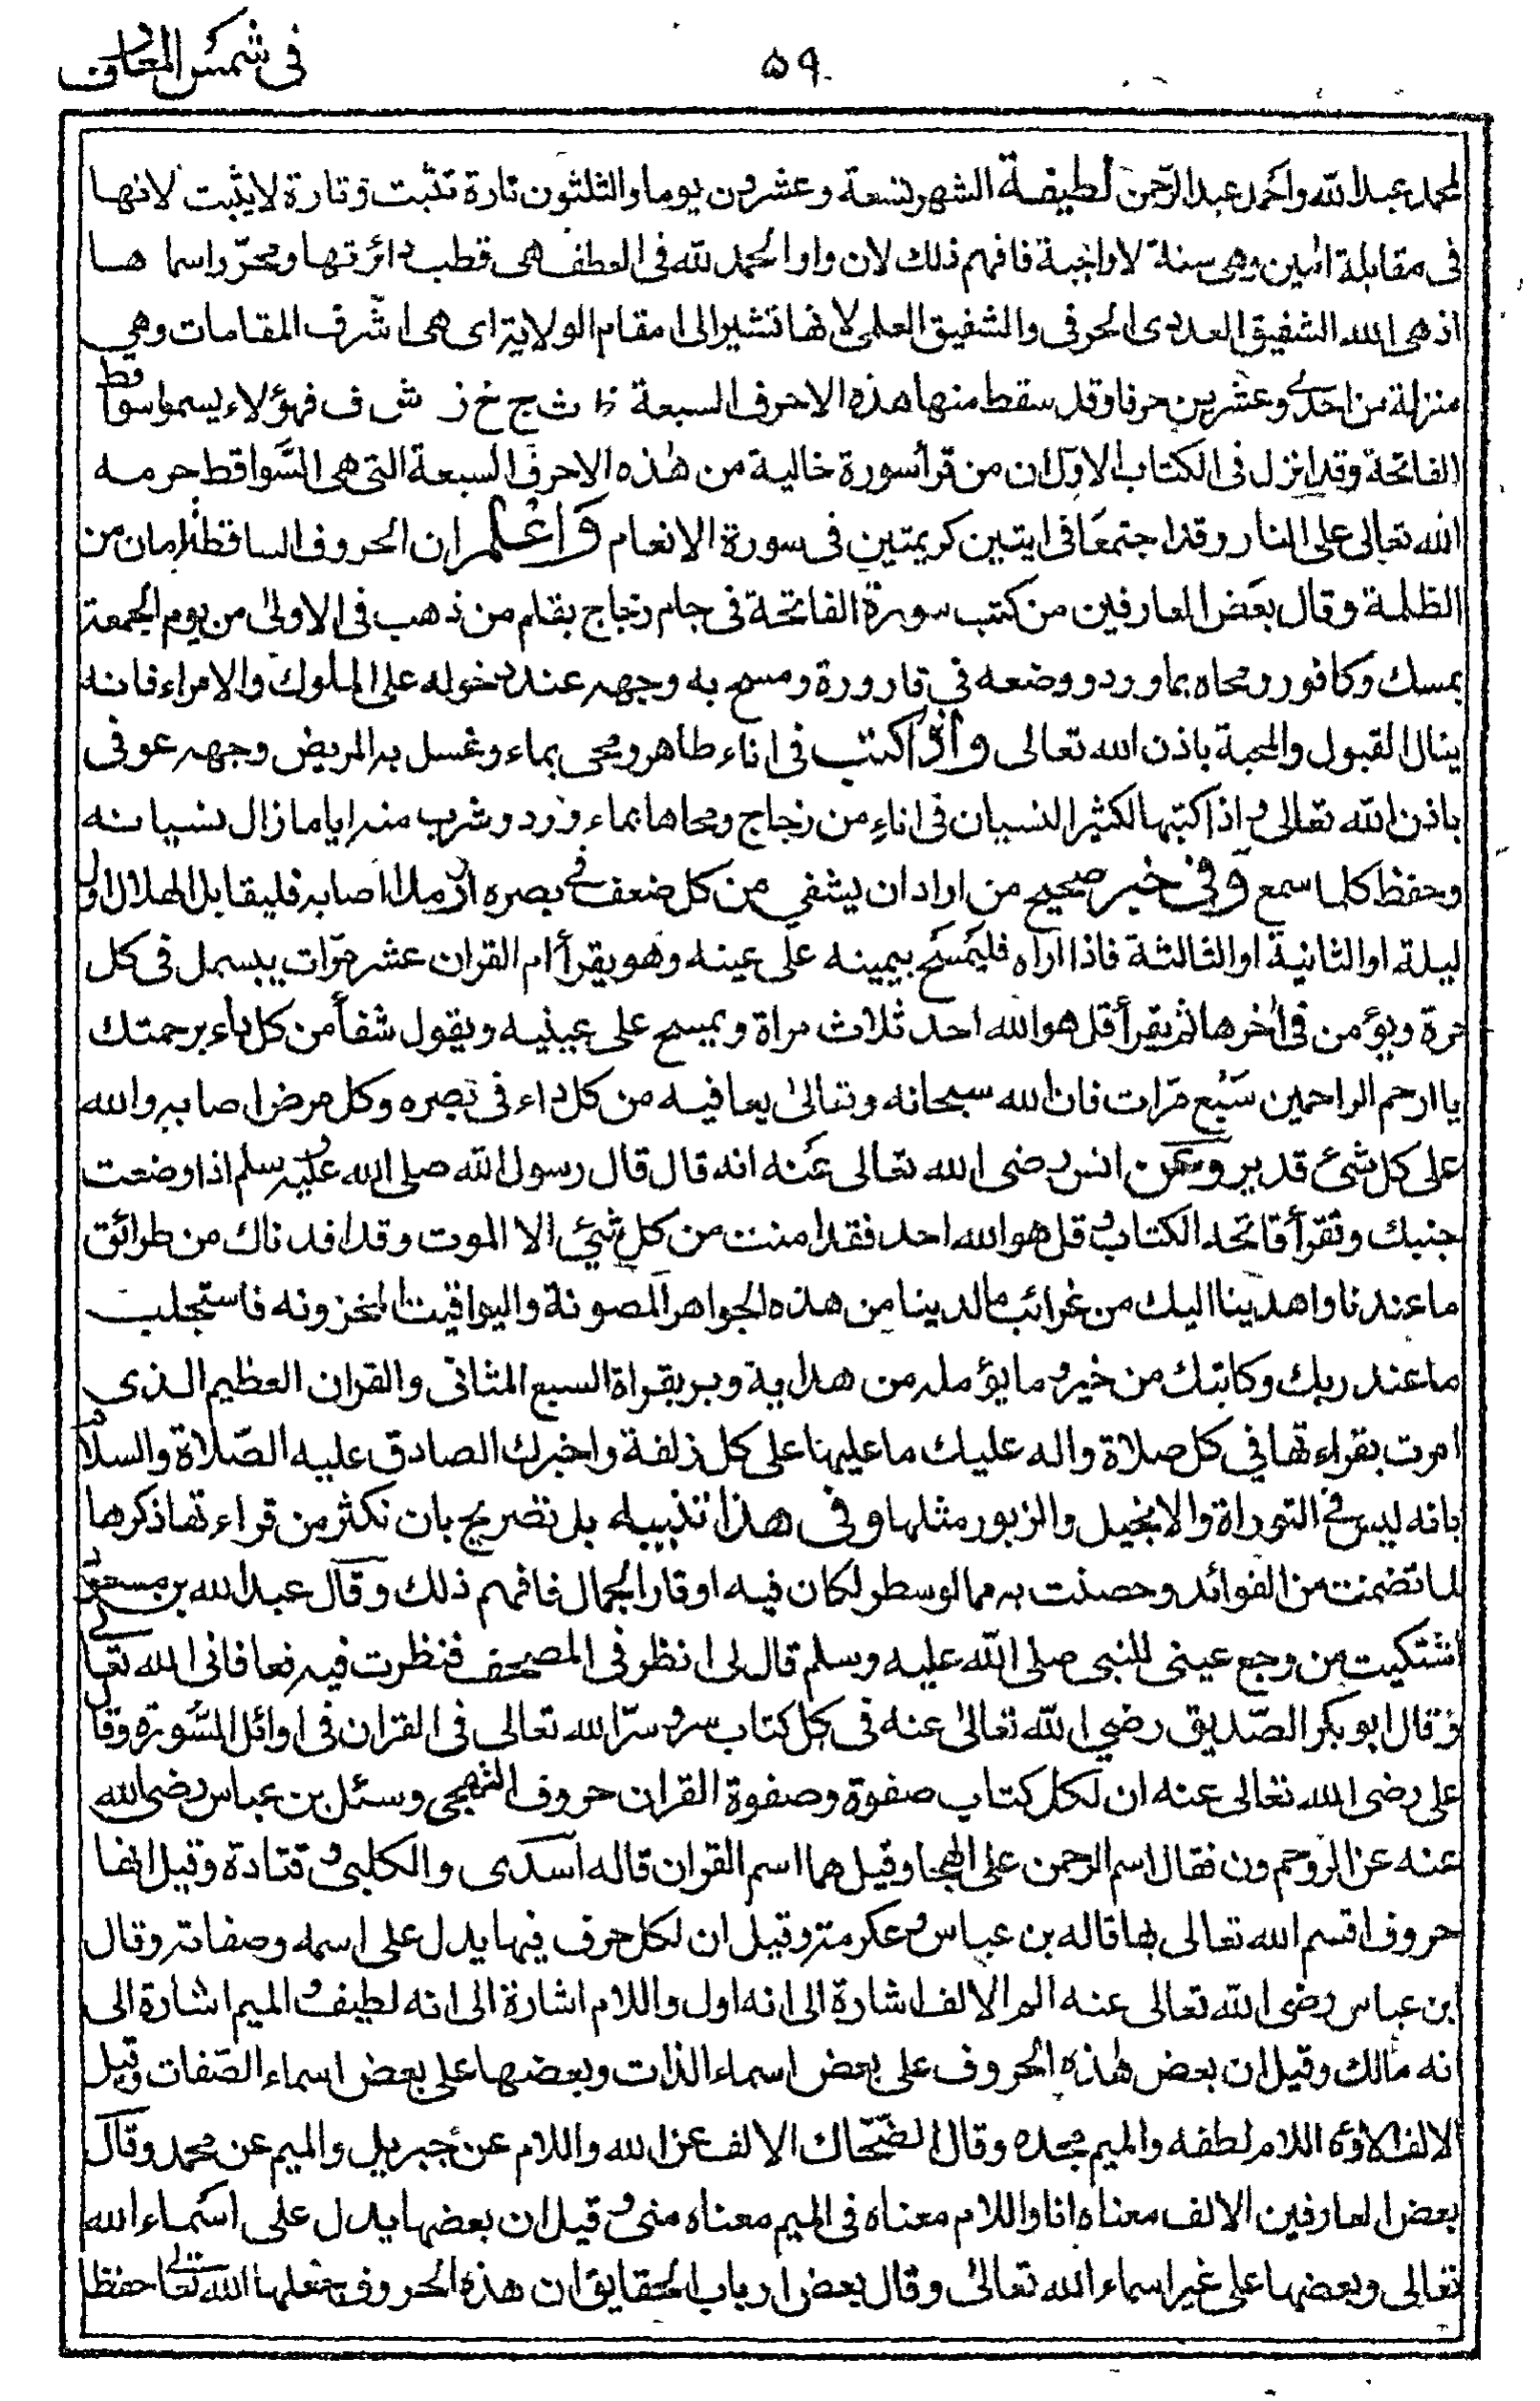 في شمس المعارف
٥٩
لمحمد عبد الله واحمد عبد الرحمن لطيفة الشهر تسعة وعشرون يوما والثلثون تارة تثبت وتارة لا يثبت لانها
فى مقابلة امين وهى سنة لا واجبة فافهم ذلك لان واو الحمد لله فى العطف هى قطب دائرتها ومحرّ واسما ها
اذ هى الله الشفيق العددى الحرفى والشفيق العلمى لانها تشير الى مقام الولاية اى هى اشرف المقامات وهي
منزلة من احدى وعشرين حرفا وقد سقط منها هذه الاحرف السبعة ظ ث ج خ ز ش ف فهؤلاء يسموا سواقط
الفاتحة وقد انزل فى الكتاب الاول ان من قرأ سورة خالية من هذه الاحرف السبعة التى هى السواقط حرمه
الله تعالى على النار وقد اجتمعا فى ايتين كريمتين فى سورة الانعام وَاعْلم ان الحروف الساقطة امان من
الظلمة وقال بعض العارفين من كتب سورة الفاتحة فى جام زجاج بقلم من ذهب فى الاولى من يوم الجمعة
بمسك وكافور ومحاه بماورد ووضعه في قارورة ومسح به وجهه عند دخوله على الملوك والامراء فانه
ينال القبول والمحبة باذن الله تعالى واذا كتب فى اناء طاهر ومحى بماء وغسل به المريض وجهه عوفى
باذن الله تعالى واذا كتبها لكثير النسيان فى اناءٍ من زجاج ومحاها بماء ورد وشرب منه اياما زال نسيانه
وحفظ كلما سمع وَفى خبر صحيح من اراد ان يشفي من كل ضعف في بصره او رمد اصابه فليقابل الهلال اول
ليلة او الثانية او الثالثة فاذا اراه فليمسح بيمينه على عينه وهو يقرأ ام القران عشر مرّات يبسمل فى كل
مرة ويؤمن فى اخرها ثم يقرأ قل هو الله احد ثلاث مراة ويمسح على عينيه ويقول شفأ من كل داء برحمتك
يا ارحم الراحمين سَبْع مرّات فان الله سبحانه وتعالى يعافيه من كل داء فى بصره وكل مرض اصابه والله
على كل شئ قدير وعَن انس رضى الله تعالى عنه انه قال قال رسول الله صلى الله عليه وسلم اذا وضعت
جنبك وتقرأ فاتحه الكتاب وقل هو الله احد فقد امنت من كل شئ الا الموت وقد افدناك من طرائق
ما عندنا واهدينا اليك من غرائب ما لدينا من هذه الجواهر المصونة واليواقيت المخزونه فاستجلب
ما عند ربك وكابتك من خير وما يؤمله من هداية وبر بقراة السبع المثانى والقران العظيم الذى
امرت بقراءتها في كل صلاة واله عليك ما عليهنا على كل زلفة واخبرك الصادق عليه الصّلاة والسلام
بانه ليس فى التوراة والانجيل والزبور مثلها وفى هذا تنبيه بل تصريح بان نكثر من قراءتها ذكرها
لما تضمنت من الفوائد وحصنت به مما لو سطر لكان فيه اوقار الجمال فافهم ذلك وقال عبد الله بن مسعود
اشتكيت من وجع عينى للنبى صلى الله عليه وسلم قال لى انظر فى المصحف فنظرت فيه فعافانى الله تعالى
وقال ابو بكر الصّديق رضي الله تعالى عنه فى كل كتاب سر وسرّ الله تعالى فى القران فى اوائل السّورة وقال
على رضى الله تعالى عنه ان لكل كتاب صفوة وصفوة القران حروف التهجى وسئل بن عباس رضى الله
عنه عن الر وحم ون فقال اسم الرحمن على الهجا وقيل هما اسم القران قاله السدى والكلبى وقتادة وقيل انها
حروف اقسم الله تعالى بها قاله بن عباس وعكرمة وقيل ان لكل حرف فيها يدل على اسمه وصفاته وقال
ابن عباس رضى الله تعالى عنه الم الالف اشارة الى انه اول واللام اشارة الى انه لطيف والميم اشارة الى
انه مالك وقيل ان بعض هذه الحروف على بعض اسماء الذات وبعضها على بعض اسماء الصّفات وقيل
الالف الاؤه اللام لطفه والميم مجده وقال الضّحّاك الالف عن الله واللام عن جبريل والميم عن محمد وقال
بعض العارفين الالف معناه انا واللام معناه فى الميم معناه منى وقيل ان بعضها يدل على اسماء الله
تعالى وبعضها على غير اسماء الله تعالى وقال بعض ارباب الحقايق ان هذه الحروف جعلها الله تعالى حفظا